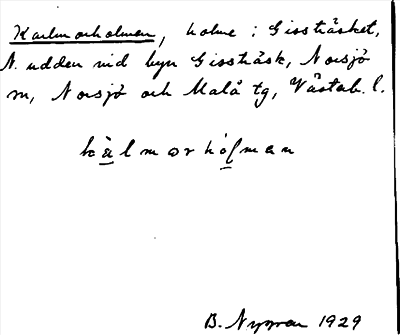 Karlmorholmen, holme i Gissträsket,
N. udden vid byn Gissträsk, Norsjö
sn, Norsjö och Malå tg, Västerb. l.
kàlmorhólman
B. Nygren 1929